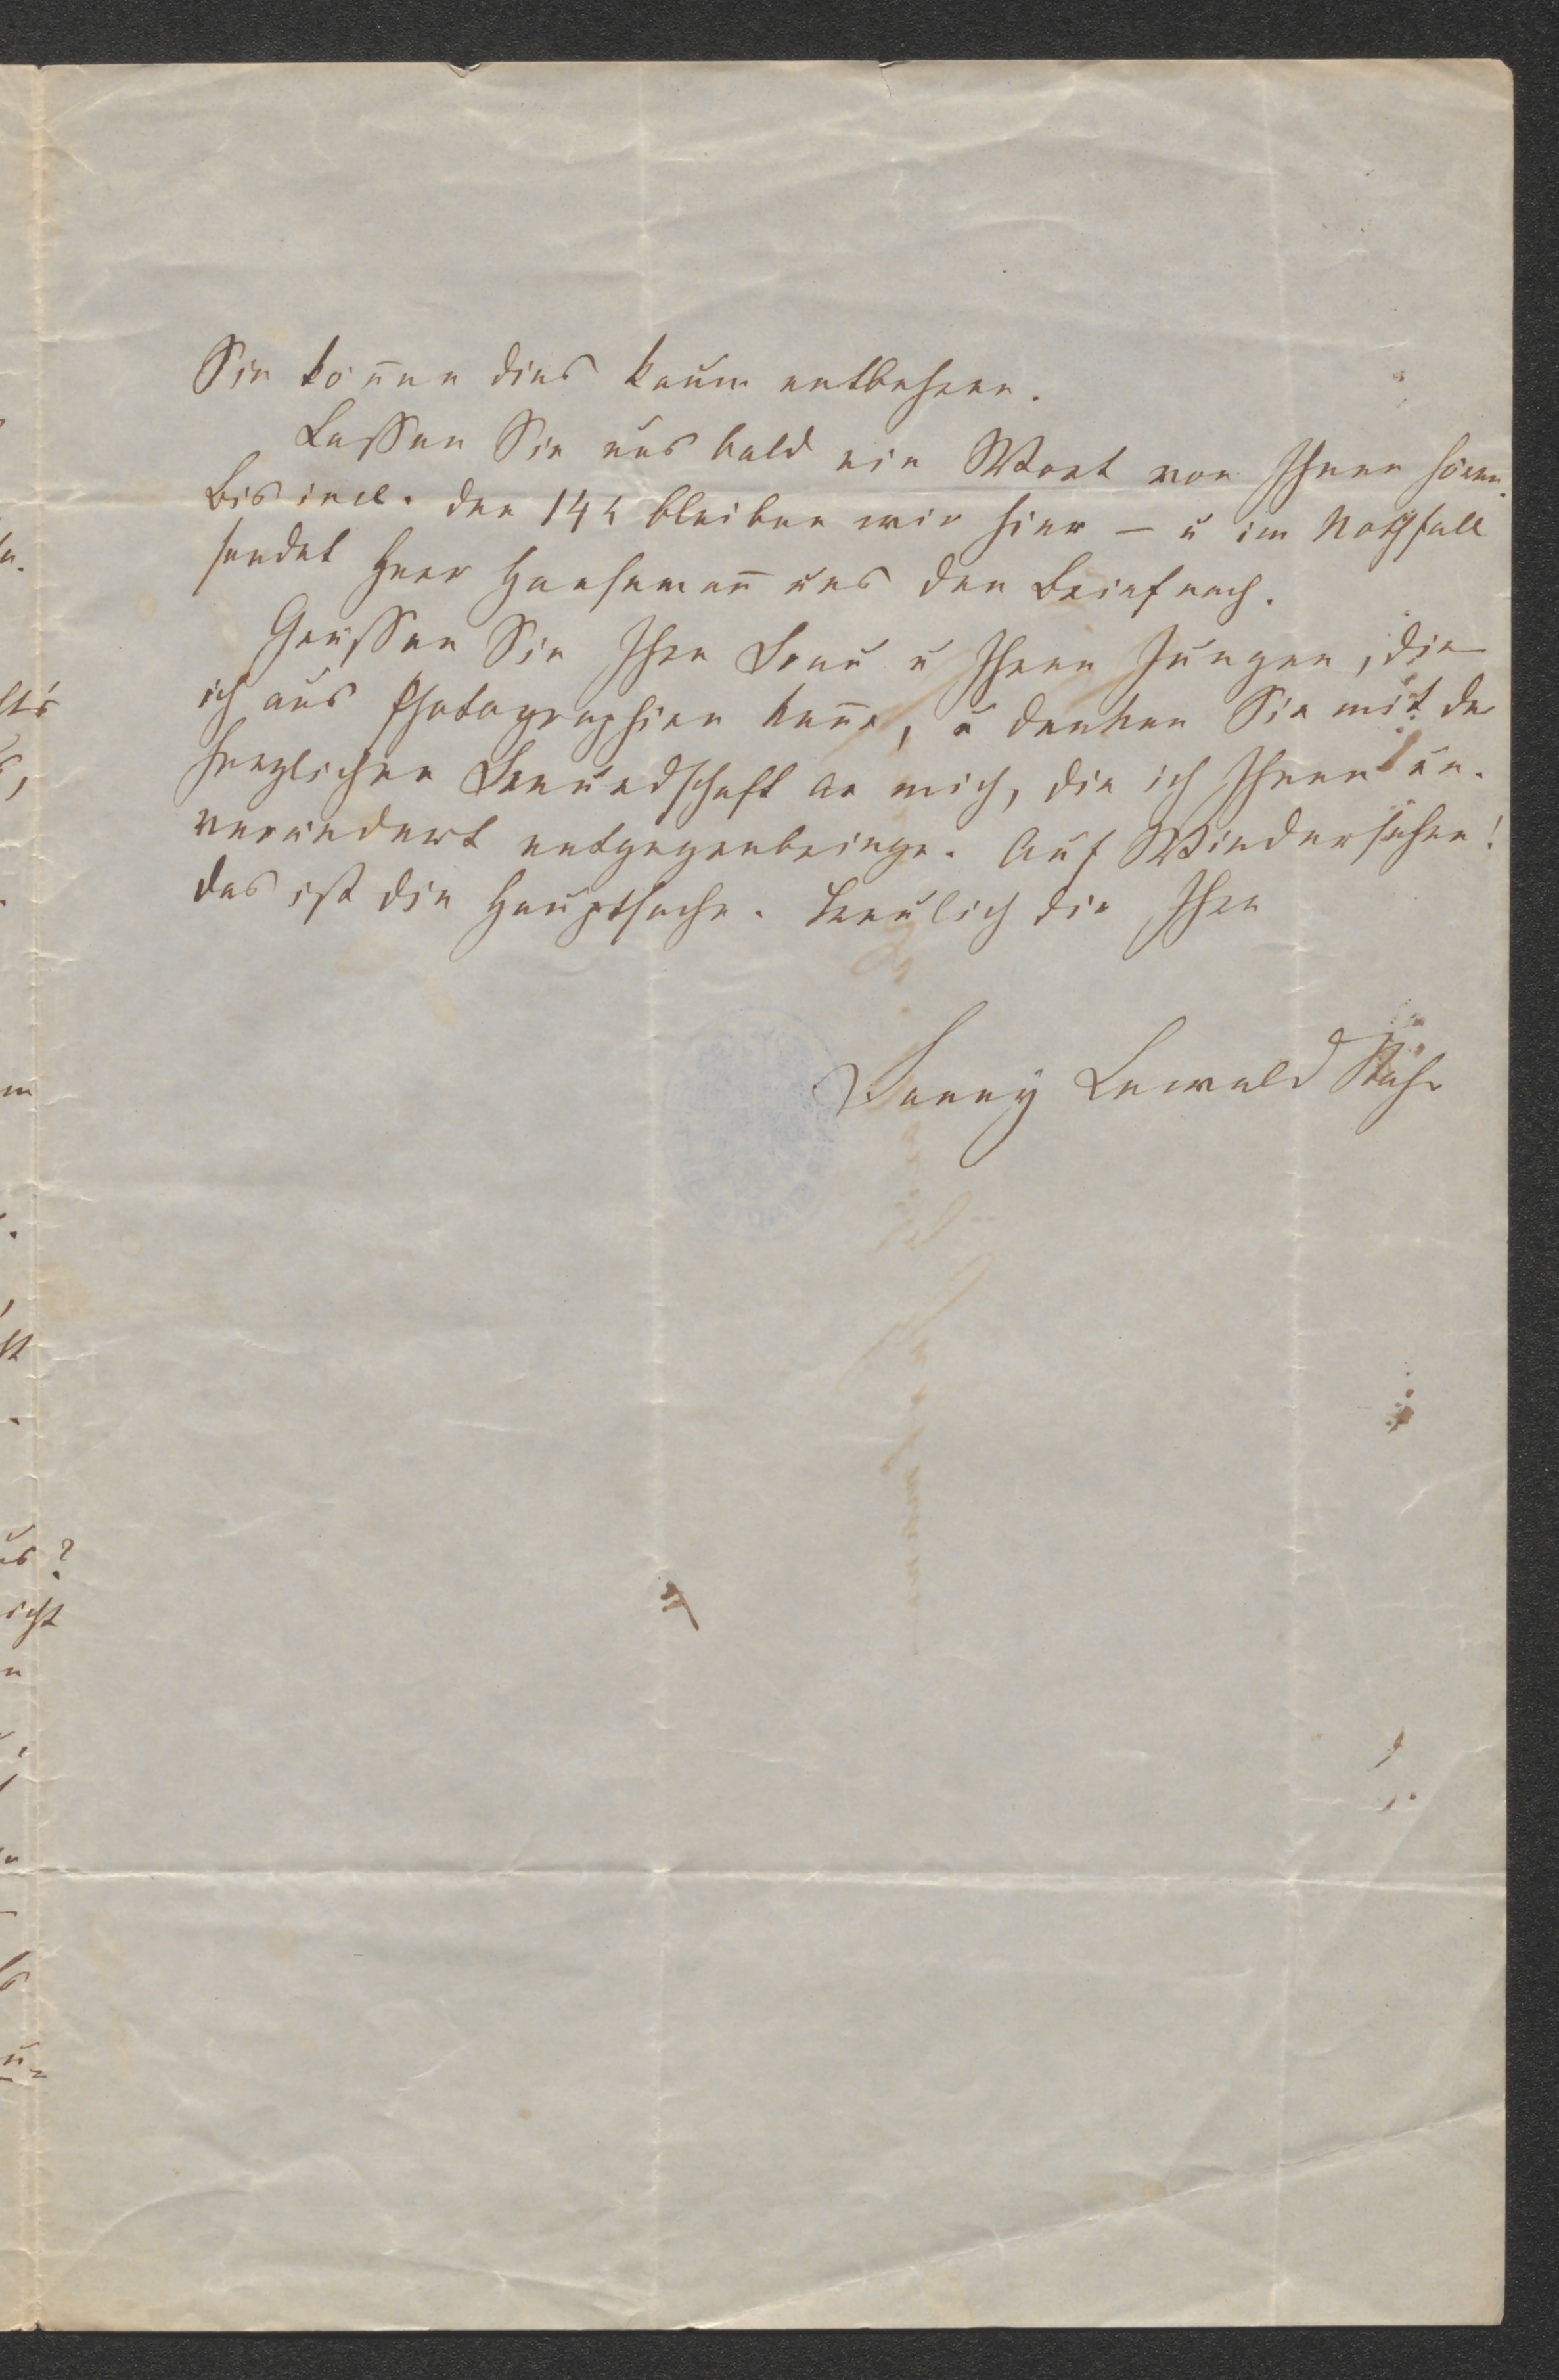 Sie kön̄en dies kaum entbehren.
Lassen Sie uns bald ein Wort von Ihnen hören.
Bis incl. den 14t bleiben wir hier — u im Nothfall
sendet Herr Hanseman̄ uns den Brief nach.
Grüssen Sie Ihre Frau u Ihren Jungen, die
ich aus Photographien ken̄e, u denken Sie mit der
herzlichen Freundschaft an mich, die ich Ihnen un-
verändert entgegenbringe. Auf Wiedersehen!
das ist die Hauptsache. Treulich die Ihre
Fanny Lewald Stahr